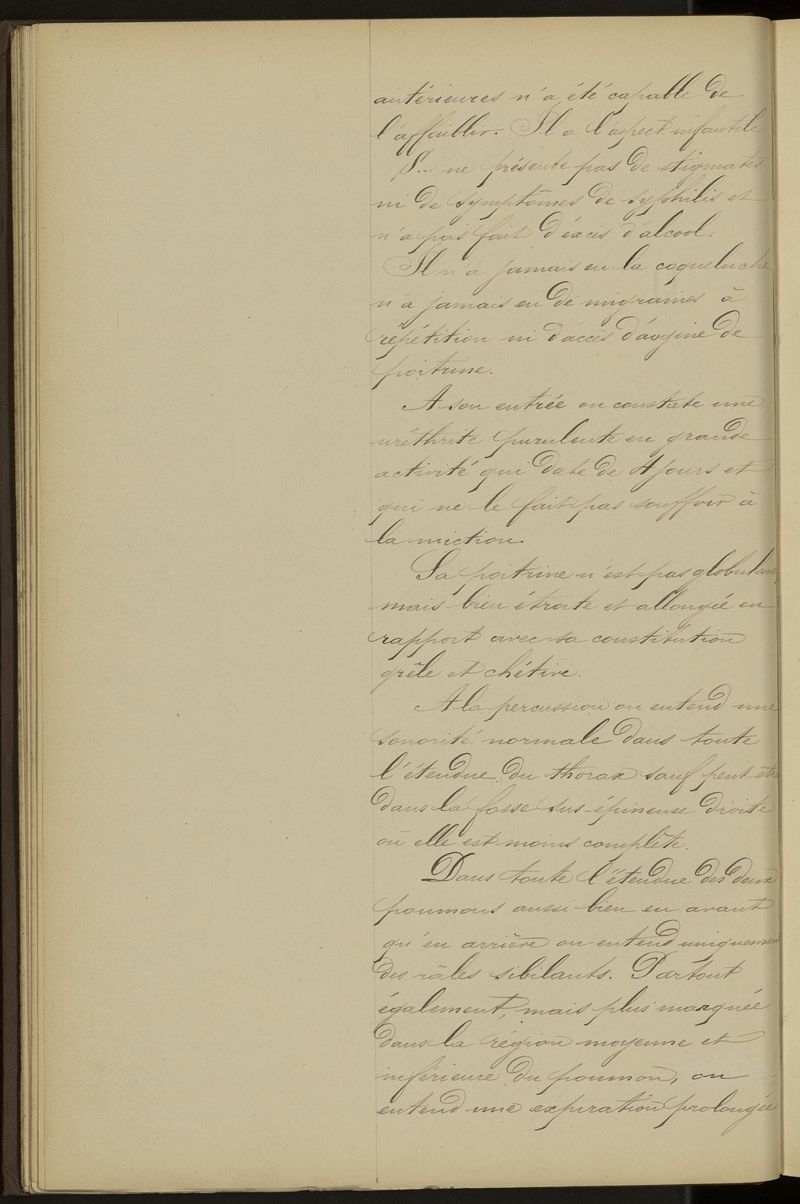 antérieures n'a été capable de
l'affaiblir. Il a l'aspect infantile
S... ne présente pas de stigmates
ni de symptômes de syphilis et
n'a pas fait d'éxcès d'alcool.
Il n'a jamais eu la coqueluche
n'a jamais eu de migraines à
répétition ni d'accès d'angine de
poitrine.
A son entrée on constate une
uréthrite purulente en grande
activité qui date de 4 jours et
qui ne le fait pas souffrir à
la miction.
Sa poitrine n'est pas globuleuse
mais bien étroite et allongée en
rapport avec sa constitution
grêle et chétive.
A la percussion on entend une
sonorité normale dans toute
l'étendue du thorax sauf peut être
dans la fosse sus-épineuse droite
où elle est moins complète.
Dans toute l'étendue des deux
poumons aussi bien en avant
qu'en arrière on entend uniquement
des râles sibilants. Partout
également, mais plus marquée
dans la région moyenne et
inférieure du poumon, on
entend une expiration prolongée